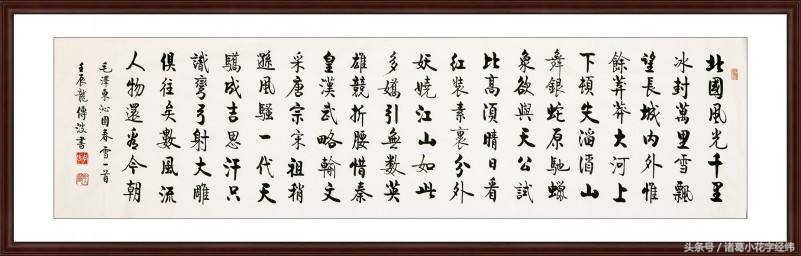 北國風光千里
冰封萬里雪飄
望長城內外惟
餘莽莽大河上
下頓失滔滔山
舞銀蛇原馳蠟
象欲與天公試
比高須晴日看
紅裝素裹分外
妖嬈江山如此
多嬌引無數英
雄競折腰惜秦
皇漢武略輸文
采唐宗宋祖稍
遜風騷一代天
驕成吉思汗只
識彎弓射大雕
俱往矣數風流
人物還看今朝
毛澤東沁園春雪一首
壬辰龍傳波書
头条号/诸葛小花字经纬